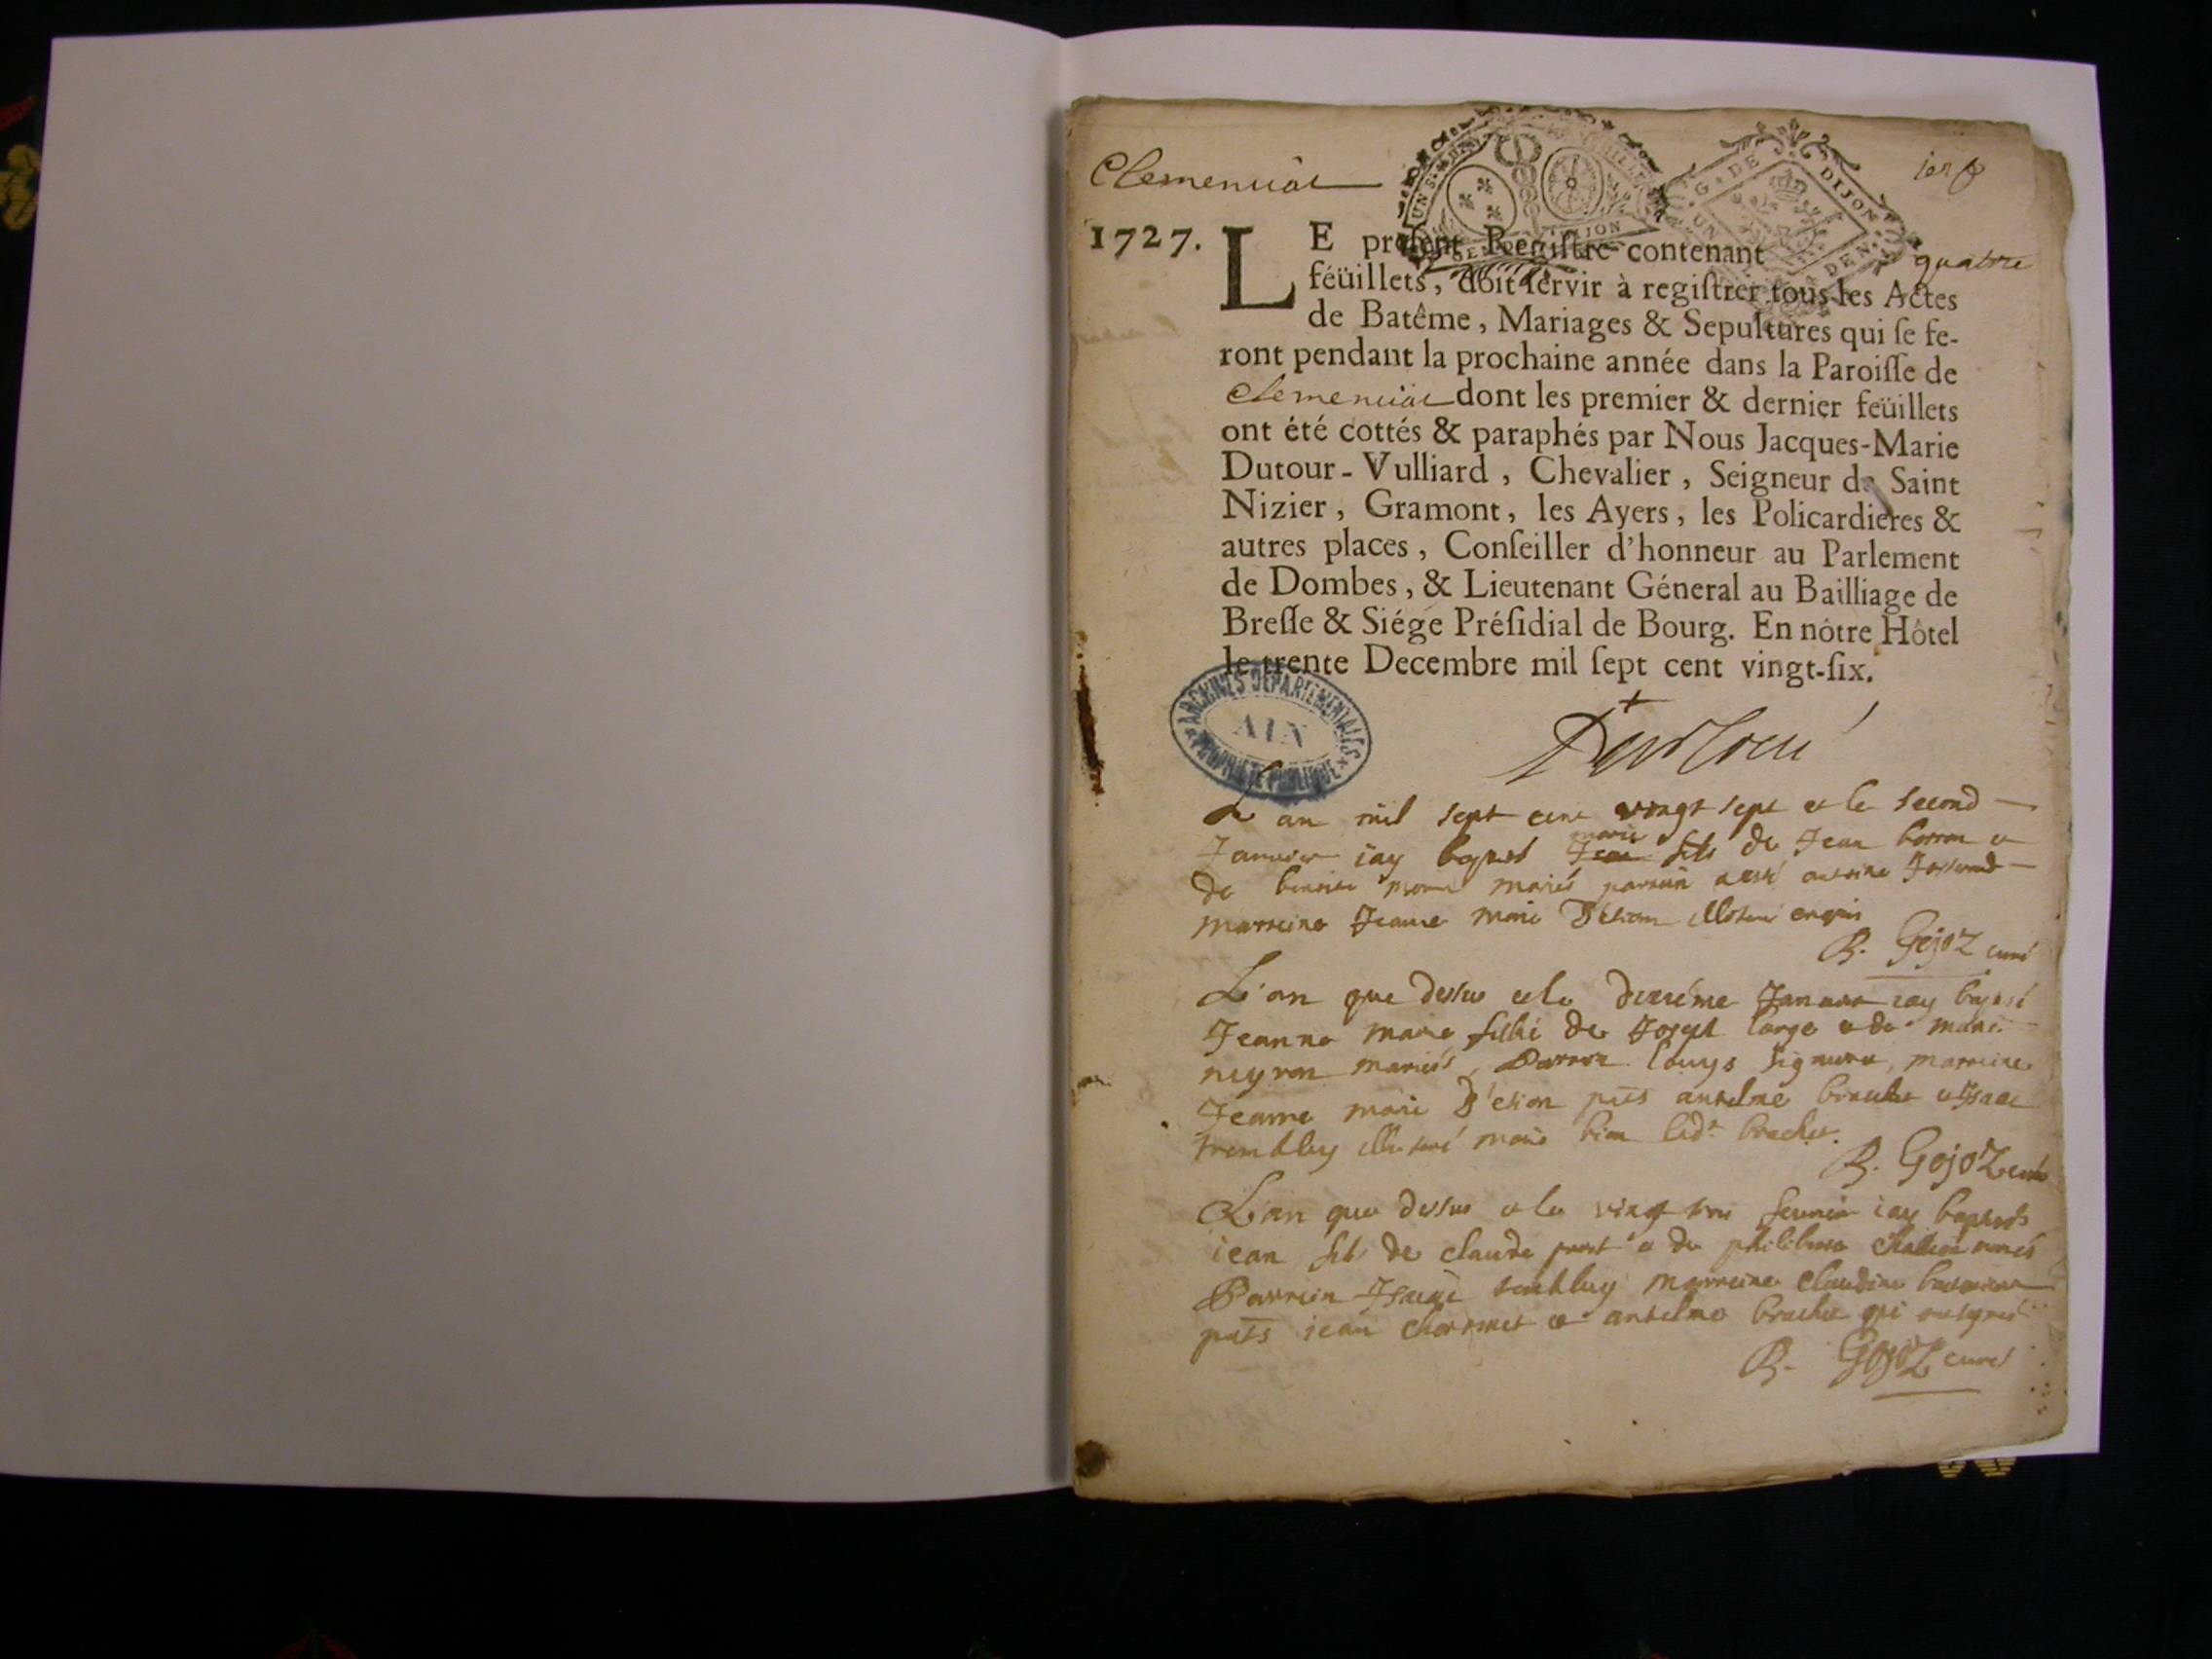 Clemencia
1727.
quatre
LE preſent Regiſtre contenant
féüillets, doit ſervir à regiſtrer tous les Actes
de Batême, Mariages & Sepultures qui ſe fe-
ront pendant la prochaine année dans la Paroiſſe de
Clemencia dont les premier & dernier feüillets
ont été cottés & paraphés par Nous Jacques-Marie
Dutour-Vulliard, Chevalier, Seigneur de Saint
Nizier, Gramont, les Ayers, les Policardieres &
autres places, Conſeiller d'honneur au Parlement
de Dombes, & Lieutenant Géneral au Bailliage de
Breſſe & Siége Préſidial de Bourg. En nôtre Hôtel
le trente Decembre mil ſept cent vingt-ſix.
G. DE DIJON
ARCHIVES DEPARTEMENTALES
AIN
PROPRIETE PUBLIQUE
L an mil sept cent vingt sept et le second
Janvier iay baptisé Jean marie fils de Jean
de mariés antoine
marreine Jeanne marie
B. Gojoz curé
L'an que dessus et le dixiéme Janvier iay baptisé
Jeanne marie fille de Joseph large et de marie
neyron mariés, Parrein Louys marreine
Jeanne marie pnts antelme brachet et Isaac
trembley brachet.
B. Gojoz curé
L'an que dessus et le vingt iay baptisé
iean fils de claude et de philiberte mariés
Parrein Isaac marreine claudine
pnts iean et antelme brachet qui
B. Gojoz curé